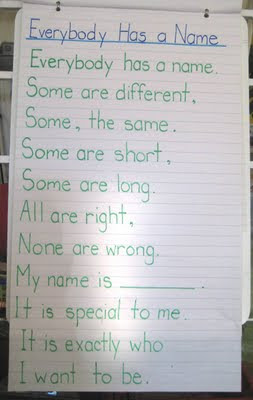 Everybody Has a Name
Everybody has a name.
Some are different,
Some, the same.
Some are short,
Some are long.
All are right,
None are wrong.
My name is ________.
It is special to me.
It is exactly who
I want to be.